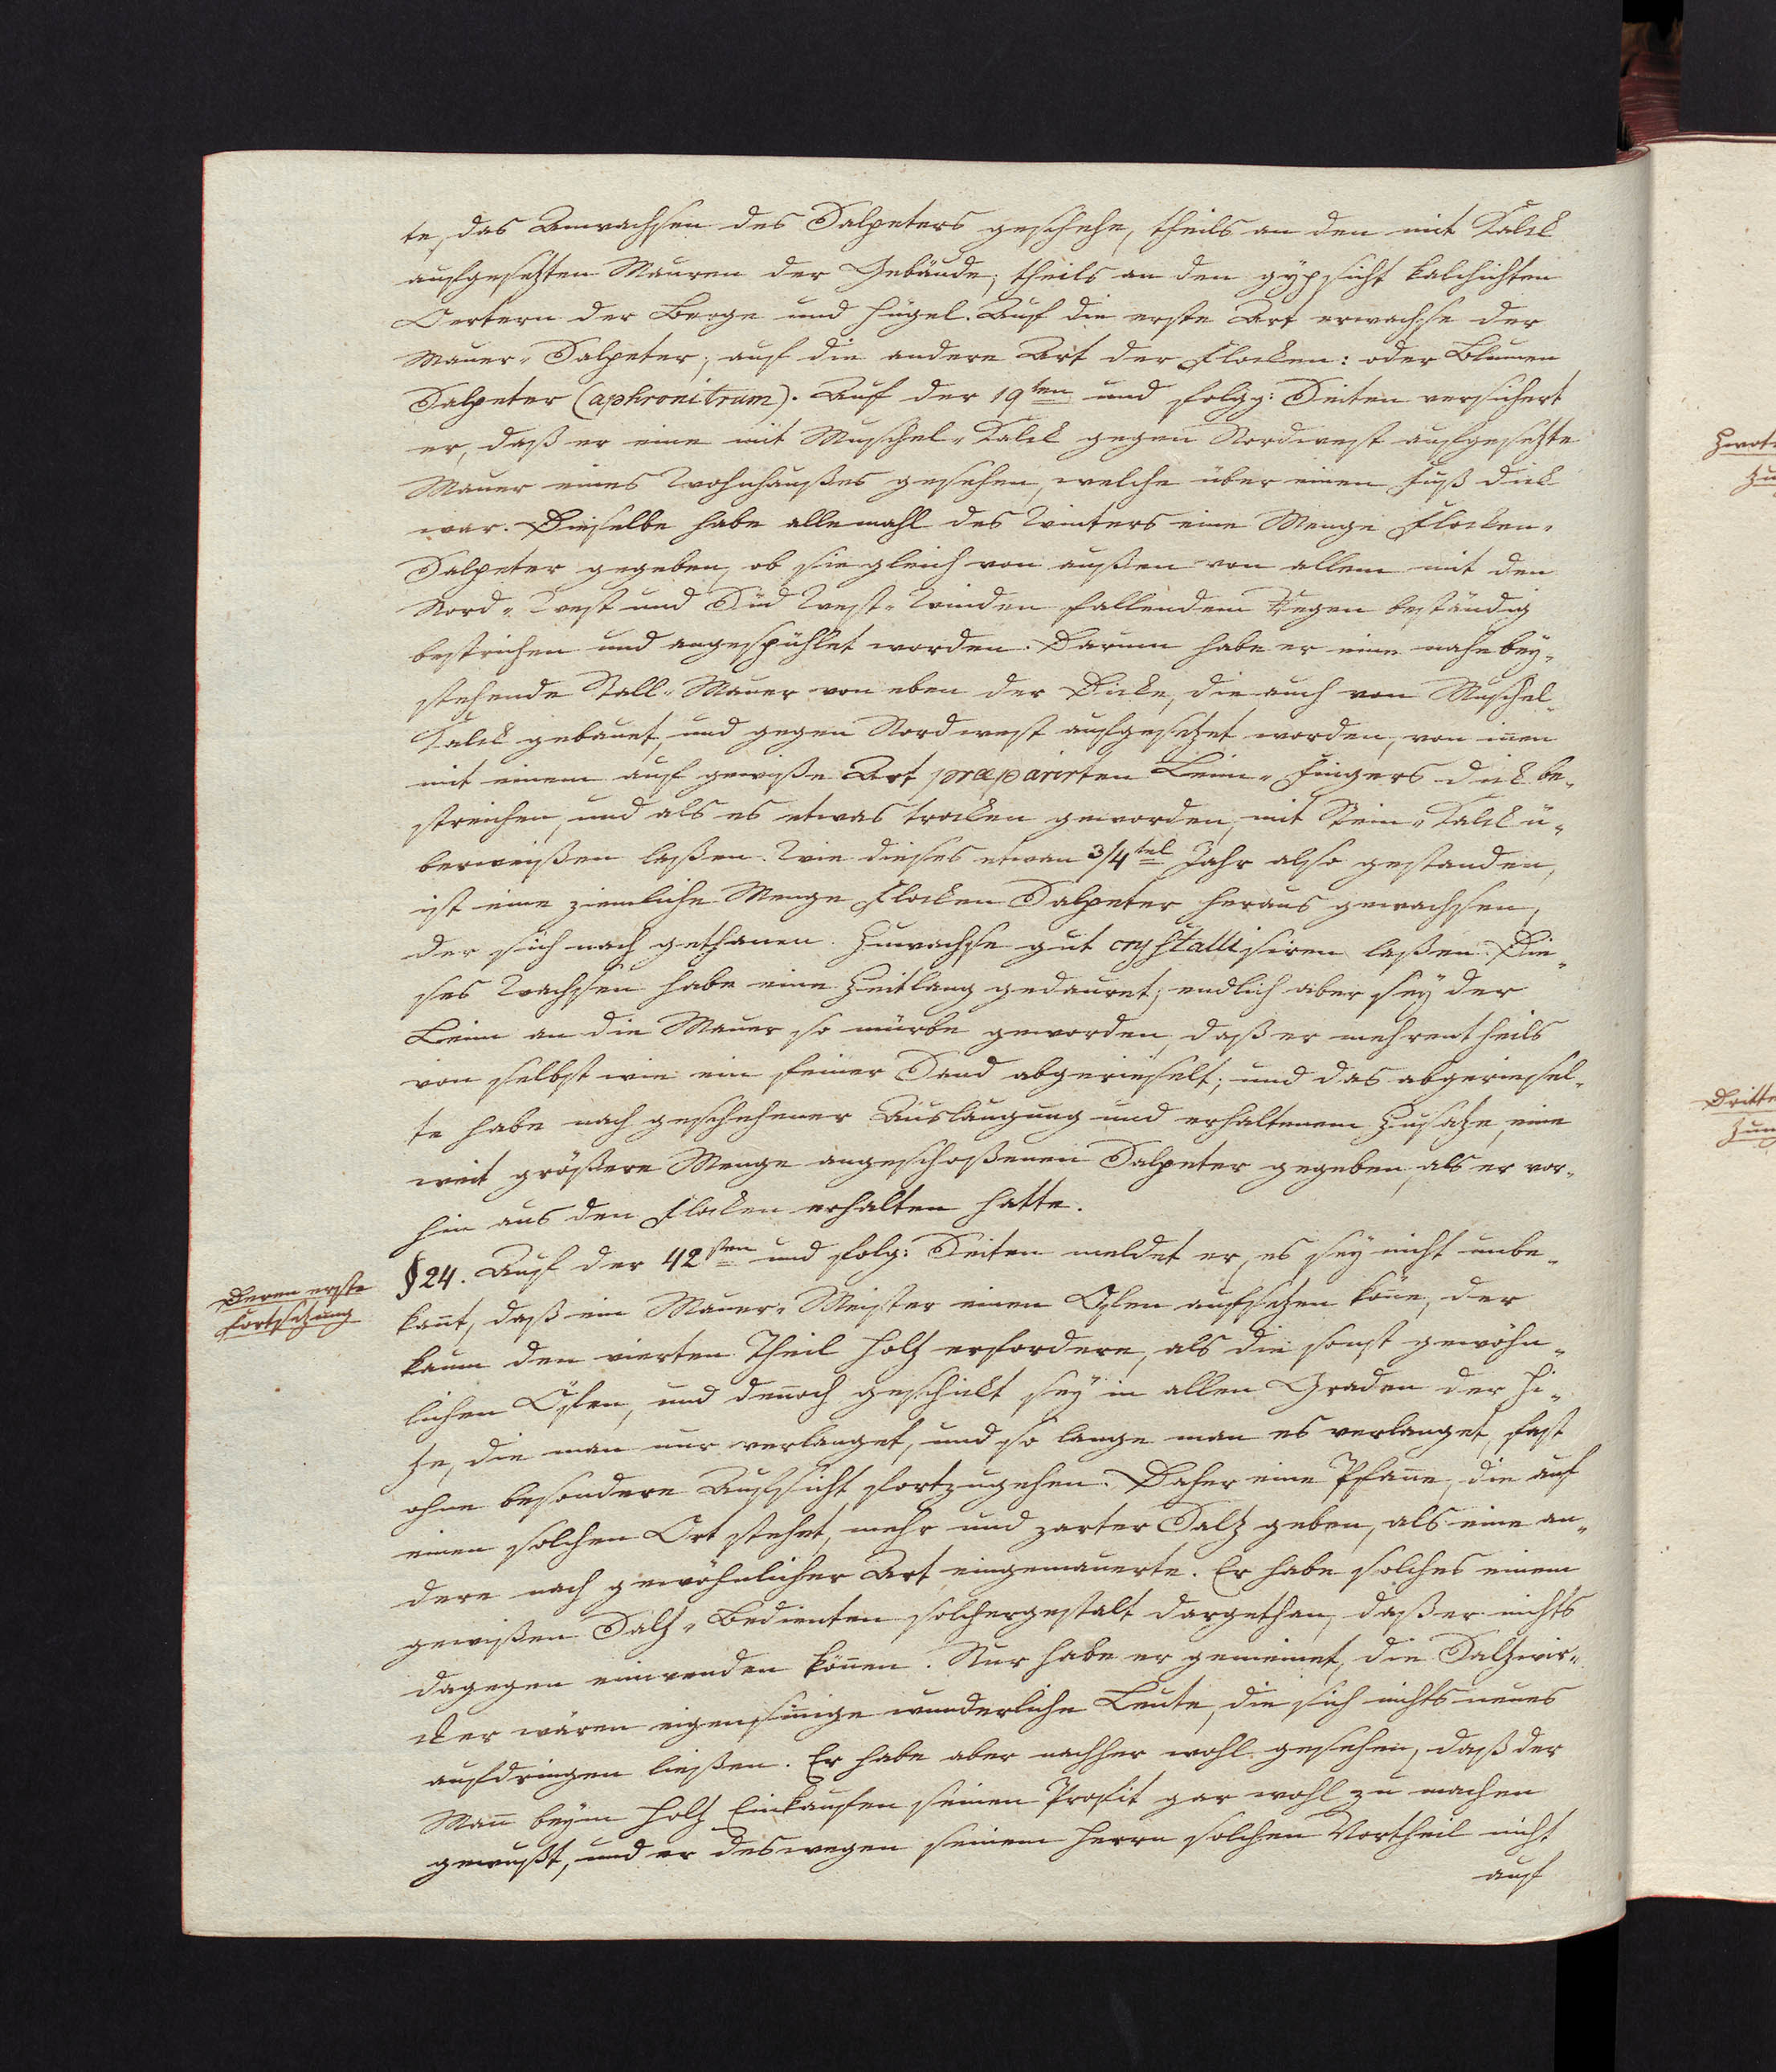 te, das Anwachsen des Salpeters geschehe, theils an den mit Kalck
aufgesetzten Mauren der Gebäude; theils an den gÿpsicht kalchichten
Oertern der Berge und Hügel. Auf die erste Art erwachse der
Mauer-Salpeter; auf die andere Art der Flocken: oder Blumen
Salpeter (aphronitrum). Auf der 19ten und folgg: Seiten versichert
er, daß er eine mit Muschel-Kalck gegen Nordwest aufgesetzte
Mauer eines Wohnhaußes gesehen, welche über einen Fuß dick
war. Dieselbe habe allemahl des Winters eine Menge Flocken-
Salpeter gegeben, ob sie gleich von außen von allem mit den
Nord-West und Süd West-Winden fallendem Regen beständig
bestrichen und angespühlet worden. Darum habe er eine nahe beÿ-
stehende Stall-Mauer von eben der Dicke, die auch von Muschel-
Kalck gebauet, und gegen Nordwest aufgesetzet worden, von inen
mit einem auf gewiße Art præparirten Leim-Fingers dick be-
streichen, und als es etwas trocken geworden, mit Stein-Kalck ü-
berweißen laßen. Wie dieses etwan 3/4tel Jahr also gestanden,
ist eine ziemliche Menge Flocken Salpeter heraus gewachsen,
der sich nach gethanen Zuwachse gut crystallisiren laßen. Die-
ses Wachsen habe eine Zeitlang gedauret; endlich aber seÿ der
Leim an die Mauer so mürbe geworden, daß er mehrentheils
von selbst wie ein feiner Sand abgerieselt; und das abgeriesel-
te habe nach geschehener Auslaugung und erhaltenem Zusatze, eine
weit größere Menge angeschoßenen Salpeter gegeben, als er vor-
hin aus den Flocken erhalten hatte.
Deren erste
Fortsetzung
§24. Auf der 42sten und folg: Seiten meldet er, es seÿ nicht unbe-
kañt, daß ein Mauer-Meister einen Ofen aufsetzen köñe, der
kaum den vierten Theil Holtz erfordere, als die sonst gewöhn-
lichen Öfen, und deñoch geschickt seÿ in allen Graden der Hi-
tze, die man nur verlanget, und so lange man es verlanget, fast
ohne besondere Aufsicht fortzugehen. Daher eine Pfañe, die auf
einen solchen Ort stehet, mehr und zarter Saltz geben, als eine an-
dere nach gewöhnlicher Art eingemauerte. Er habe solches einem
gewißen Saltz-Bedienten solchergestalt dargethan, daß er nichts
dagegen einwenden köñen. Nur habe er gemeinet, die Saltzwir-
cker wären eigensiñige wunderliche Leute, die sich nichts neues
aufdringen ließen. Er habe aber nachher wohl gesehen, daß der
Mañ beÿm Holtz Einkaufen seinen Profit gar wohl zu machen
gewußt, und er deswegen seinem Herrn solchen Vortheil nicht
auf
Dritte